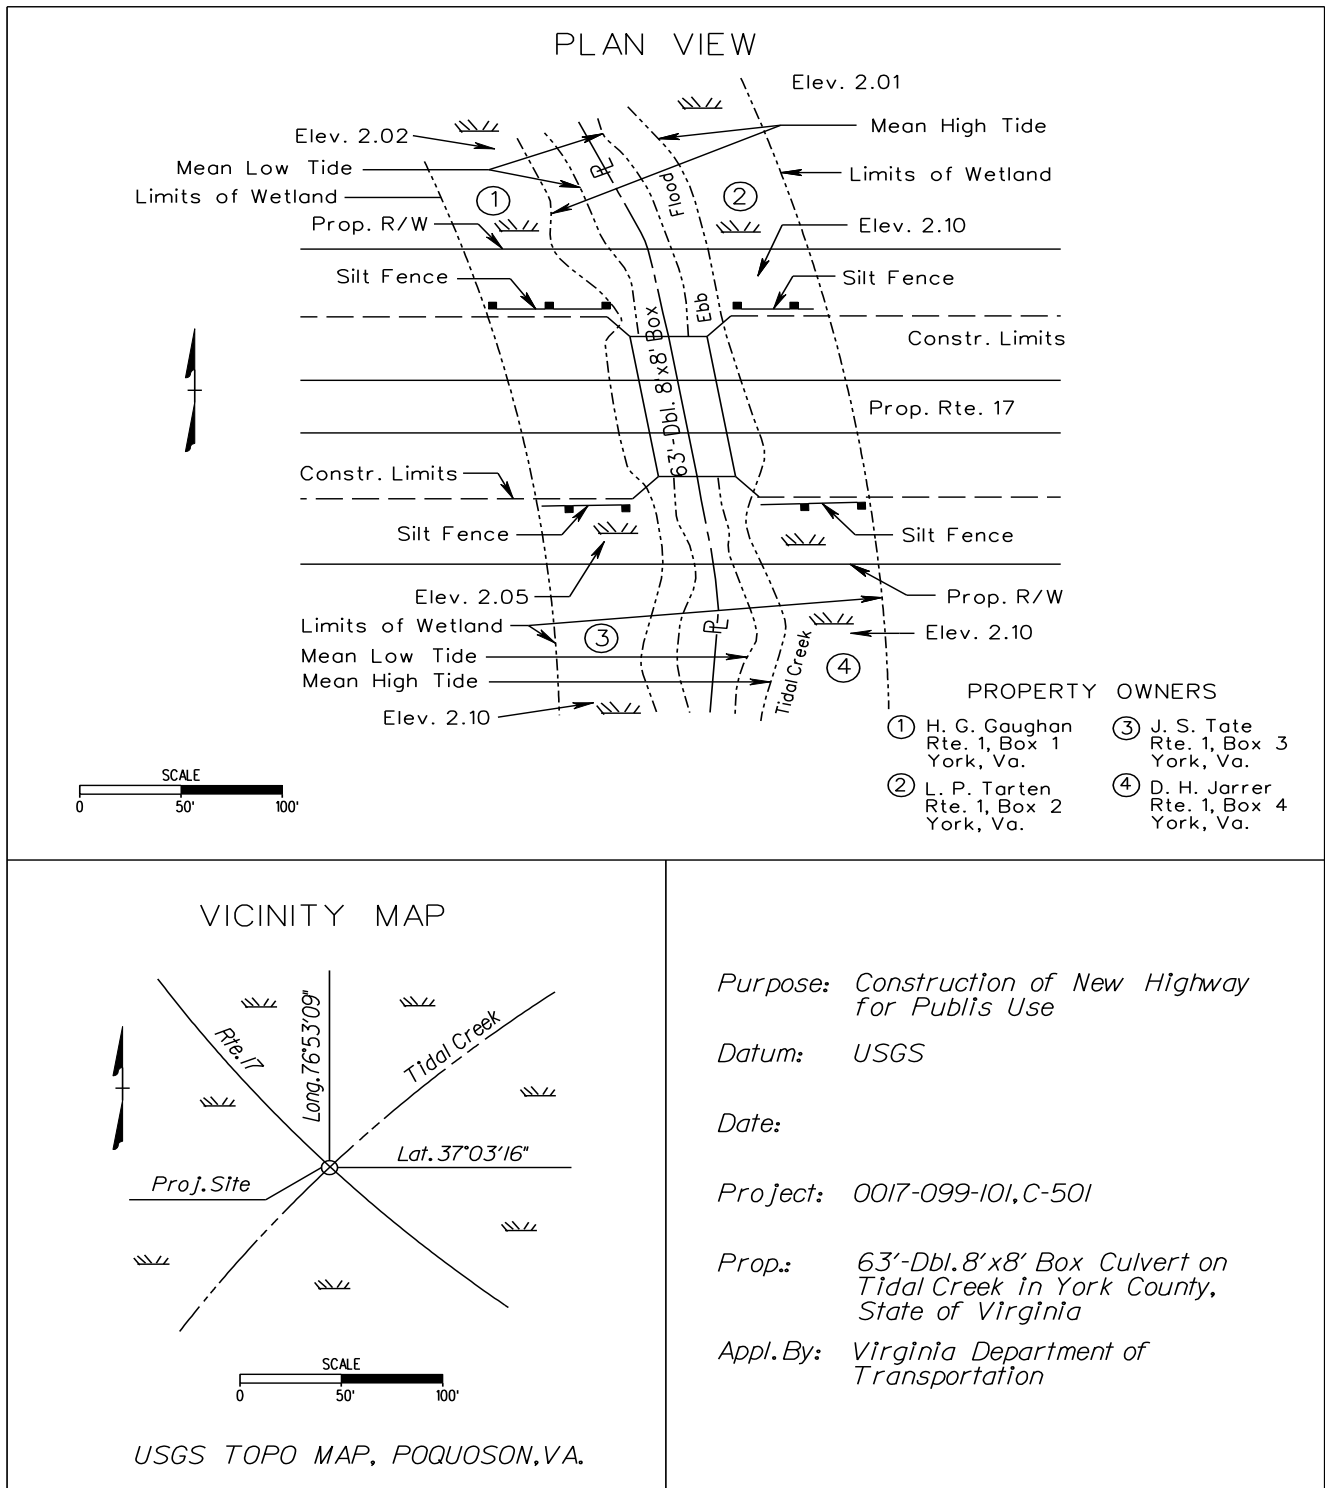 PLAN VIEW
Elev. 2.01
Elev. 2.02
Mean High Tide
Mean Low Tide
Limits of Wetland
Limits of Wetland
Flood
PL
1
2
Prop. R/W
Elev. 2.10
Silt Fence
Silt Fence
Ebb
Constr. Limits
63'-Dbl. 8'x8' Box
Prop. Rte. 17
Constr. Limits
Silt Fence
Silt Fence
Elev. 2.05
Prop. R/W
Limits of Wetland
PL
3
Elev. 2.10
Mean Low Tide
Tidal Creek
4
Mean High Tide
Elev. 2.10
PROPERTY OWNERS
1 H. G. Gaughan
Rte. 1, Box 1
York, Va.
2 L. P. Tarten
Rte. 1, Box 2
York, Va.
3 J. S. Tate
Rte. 1, Box 3
York, Va.
4 D. H. Jarrer
Rte. 1, Box 4
York, Va.
SCALE
0 50' 100'
VICINITY MAP
Rte. 17
Long. 76°53'09"
Tidal Creek
Lat. 37°03'16"
Proj. Site
SCALE
0 50' 100'
USGS TOPO MAP, POQUOSON, VA.
Purpose: Construction of New Highway
for Publis Use
Datum: USGS
Date:
Project: 0017-099-101, C-501
Prop.: 63'-Dbl. 8'x8' Box Culvert on
Tidal Creek in York County,
State of Virginia
Appl. By: Virginia Department of
Transportation